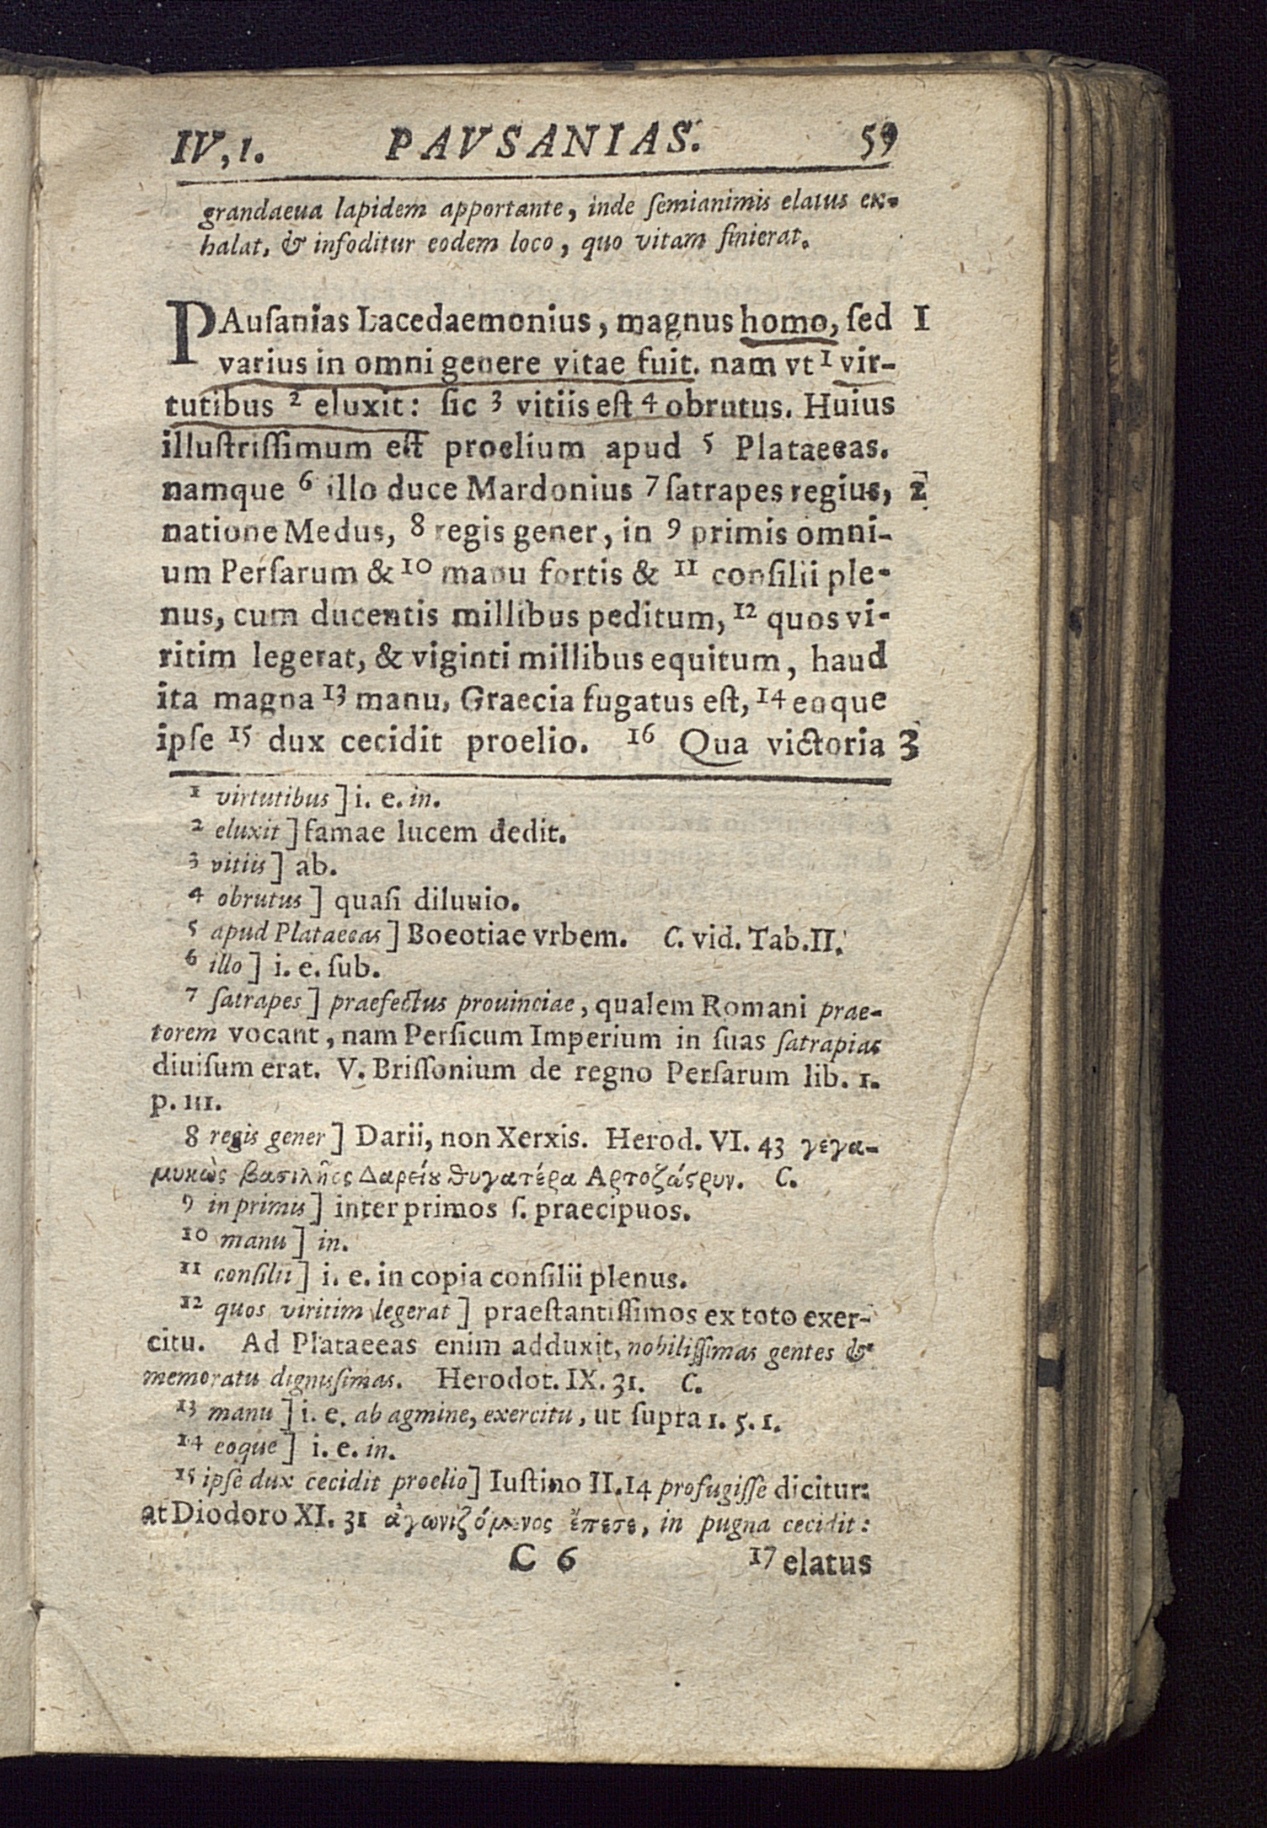 IV, 1. PAVSANIAS. 59
grandaeua lapidem apportante, inde ſemianimis elatus ex-
halat, & infoditur eodem loco, quo vitam finierat.
PAuſanias Lacedaemonius, magnus homo, ſed 1
varius in omni genere vitae fuit. nam vt 1 vir-
tutibus 2 eluxit: ſic 3 vitiis eſt 4 obrutus. Huius
illuſtriſſimum eſt proelium apud 5 Plataeeas.
namque 6 illo duce Mardonius 7 ſatrapes regius, 2
natione Medus, 8 regis gener, in 9 primis omni-
um Perſarum & 10 manu fortis & 11 conſilii ple-
nus, cum ducentis millibus peditum, 12 quos vi-
ritim legerat, & viginti millibus equitum, haud
ita magna 13 manu, Graecia fugatus eſt, 14 eoque
ipſe 15 dux cecidit proelio. 16 Qua victoria 3
1 virtutibus] i. e. in.
2 eluxit] famae lucem dedit.
3 vitiis] ab.
4 obrutus] quaſi diluuio.
5 apud Plataeeas] Boeotiae vrbem. C. vid. Tab. II.
6 illo] i. e. ſub.
7 ſatrapes] praefectus prouinciae, qualem Romani prae-
torem vocant, nam Perſicum Imperium in ſuas ſatrapias
diuiſum erat. V. Briſſonium de regno Perſarum lib. 1.
p. 111.
8 regis gener] Darii, non Xerxis. Herod. VI. 43 γεγα-
μυκὼς βασιλῆος Δαρείȣ θυγατέρα Αρτοζάςρυν. C.
9 in primis] inter primos ſ. praecipuos.
10 manu] in.
11 conſilii] i. e. in copia conſilii plenus.
12 quos viritim legerat] praeſtantiſſimos ex toto exer-
citu. Ad Plataeeas enim adduxit, nobiliſſimas gentes &
memoratu dignuſimas. Herodot. IX. 31. C.
13 manu] i. e. ab agmine, exercitu, ut ſupra 1. 5. 1.
14 eoque] i. e. in.
15 ipſe dux cecidit proelio] Iuſtino II. 14 profugiſſe dicitur:
at Diodoro XI. 31 ἀγωνιζόμενος ἔπεσε, in pugna cecidit:
C 6 17 elatus